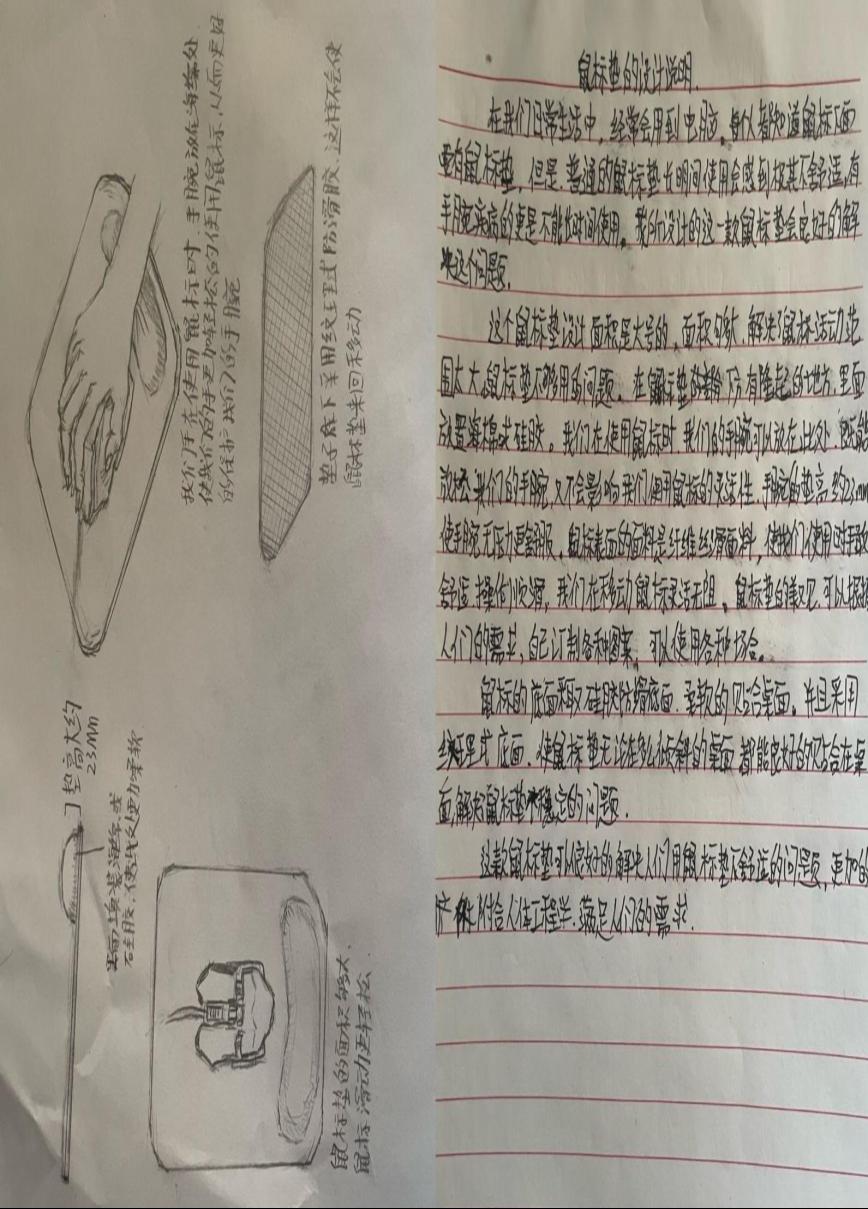 我们手在使用鼠标时，手腕放在海绵处
使我们的手更加轻松的使用鼠标，从而更好
的保护我们的手腕
垫子底下采用纹理式防滑胶，这样不会使
鼠标垫来回移动
垫高大约
23mm
里面填装海绵，或
硅胶，使
鼠标垫的面积够大，
鼠标滑动更轻松
鼠标垫的设计说明
在我们日常生活中，经常会用到电脑。每个人都知道鼠标下面
要有鼠标垫，但是，普通的鼠标垫长时间使用会感到极其不舒适，有
手腕疾病的更是不能长时间使用。我所设计的这一款鼠标垫会良好的解
决这个问题。
这个鼠标垫设计面积是大号的，面积够大，解决了鼠标活动范
围太大，鼠标垫不够用的问题。在鼠标垫的下方有隆起的地方，里面
放置海棉或硅胶。我们在使用鼠标时，我们的手腕可以放在此处，既能
放松我们的手腕，又不会影响我们使用鼠标的灵活性，手腕的垫高约23mm
使手腕无压力更舒服。鼠标表面的面料是纤维丝滑面料，使我们使用时手
舒适，操作顺滑，我们在移动鼠标灵活无阻。鼠标垫的，可以根据
人们的需求，自己订制各种图案，可以使用各种场合。
鼠标的底面采取硅胶防滑底面，柔软的贴合桌面。并且采用
纹理式底面，使鼠标垫无论在多么倾斜的桌面都能良好的贴合在桌
面，解决鼠标垫不稳定的问题。
这款鼠标垫可以良好的解决人们用鼠标垫不舒适的问题，更加的
符合人体工程学，满足人们的需求。